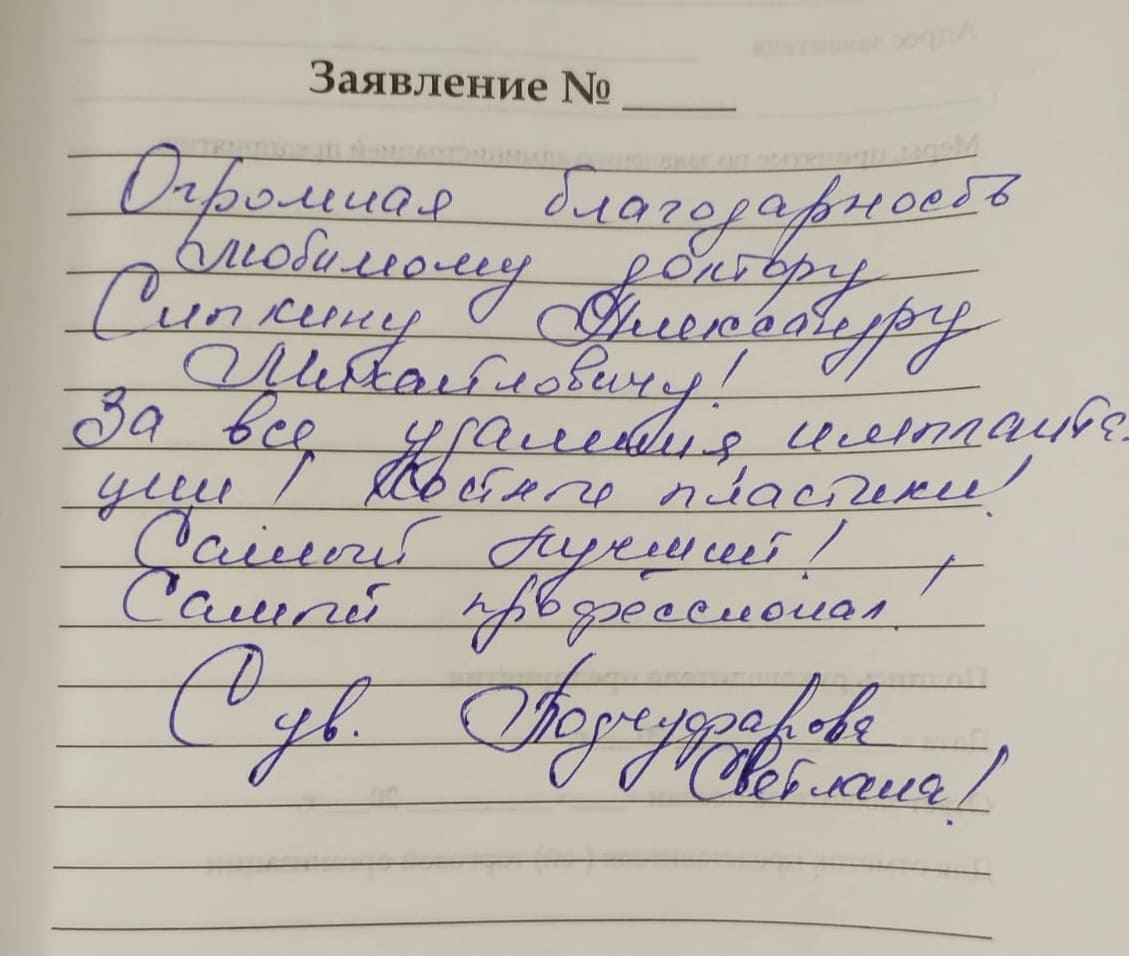 Заявление № _____
Огромная благодарность
любимому доктору
Сипкину Александру
Михайловичу!
За все удаления, импланта-
ции! Костные пластики!
Самый лучший!
Самый профессионал!
С ув.
Светлана!